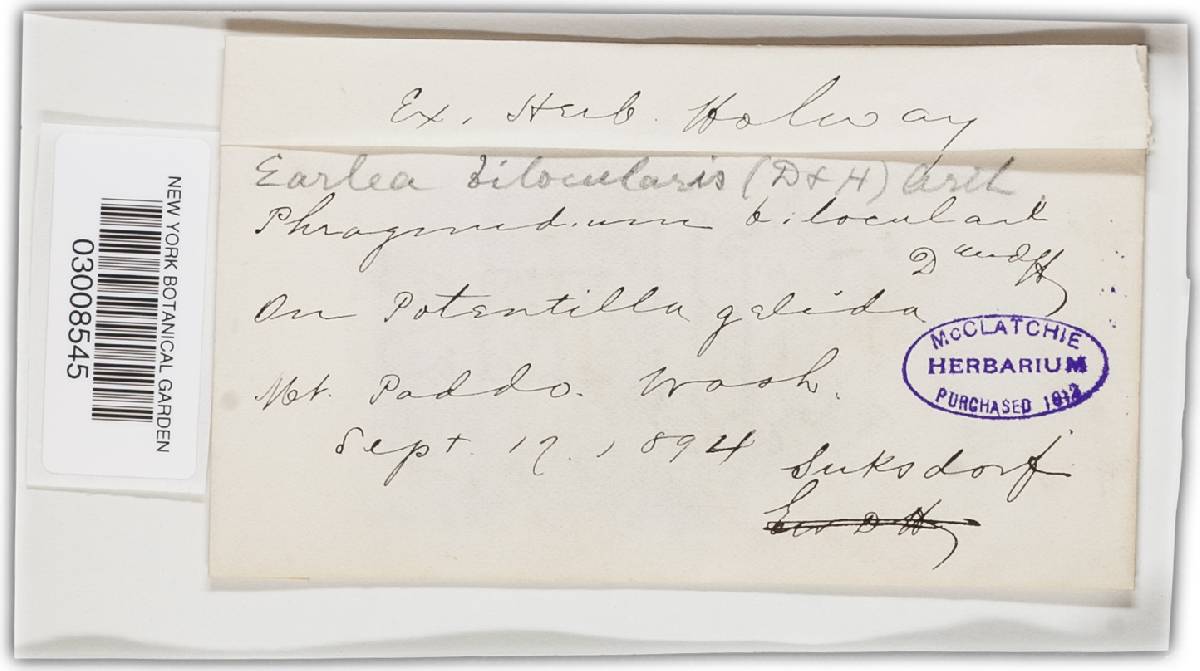 Ex. Herb. Holway
Earlea bilocularis (D & H) Arth
Phragmidium biloculare
D and H
On Potentilla gelida
Mt. Paddo. Wash.
Sept. 17. 1894
Suksdorf
McCLATCHIE
HERBARIUM
PURCHASED 1912
NEW YORK BOTANICAL GARDEN
03008545